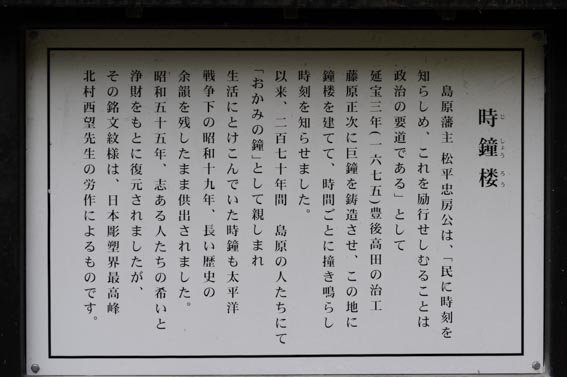 時鐘楼
じしょうろう
島原藩主 松平忠房公は、「民に時刻を
知らしめ、これを励行せしむることは
政治の要道である」として
延宝三年(一六七五)豊後高田の治工
藤原正次に巨鐘を鋳造させ、この地に
鐘楼を建てて、時間ごとに撞き鳴らし
時刻を知らせました。
以来、二百七十年間 島原の人たちにて
「おかみの鐘」として親しまれ
生活にとけこんでいた時鐘も太平洋
戦争下の昭和十九年、長い歴史の
余韻を残したまま供出されました。
昭和五十五年、志ある人たちの希いと
浄財をもとに復元されましたが、
その銘文紋様は、日本彫塑界最高峰
北村西望先生の労作によるものです。